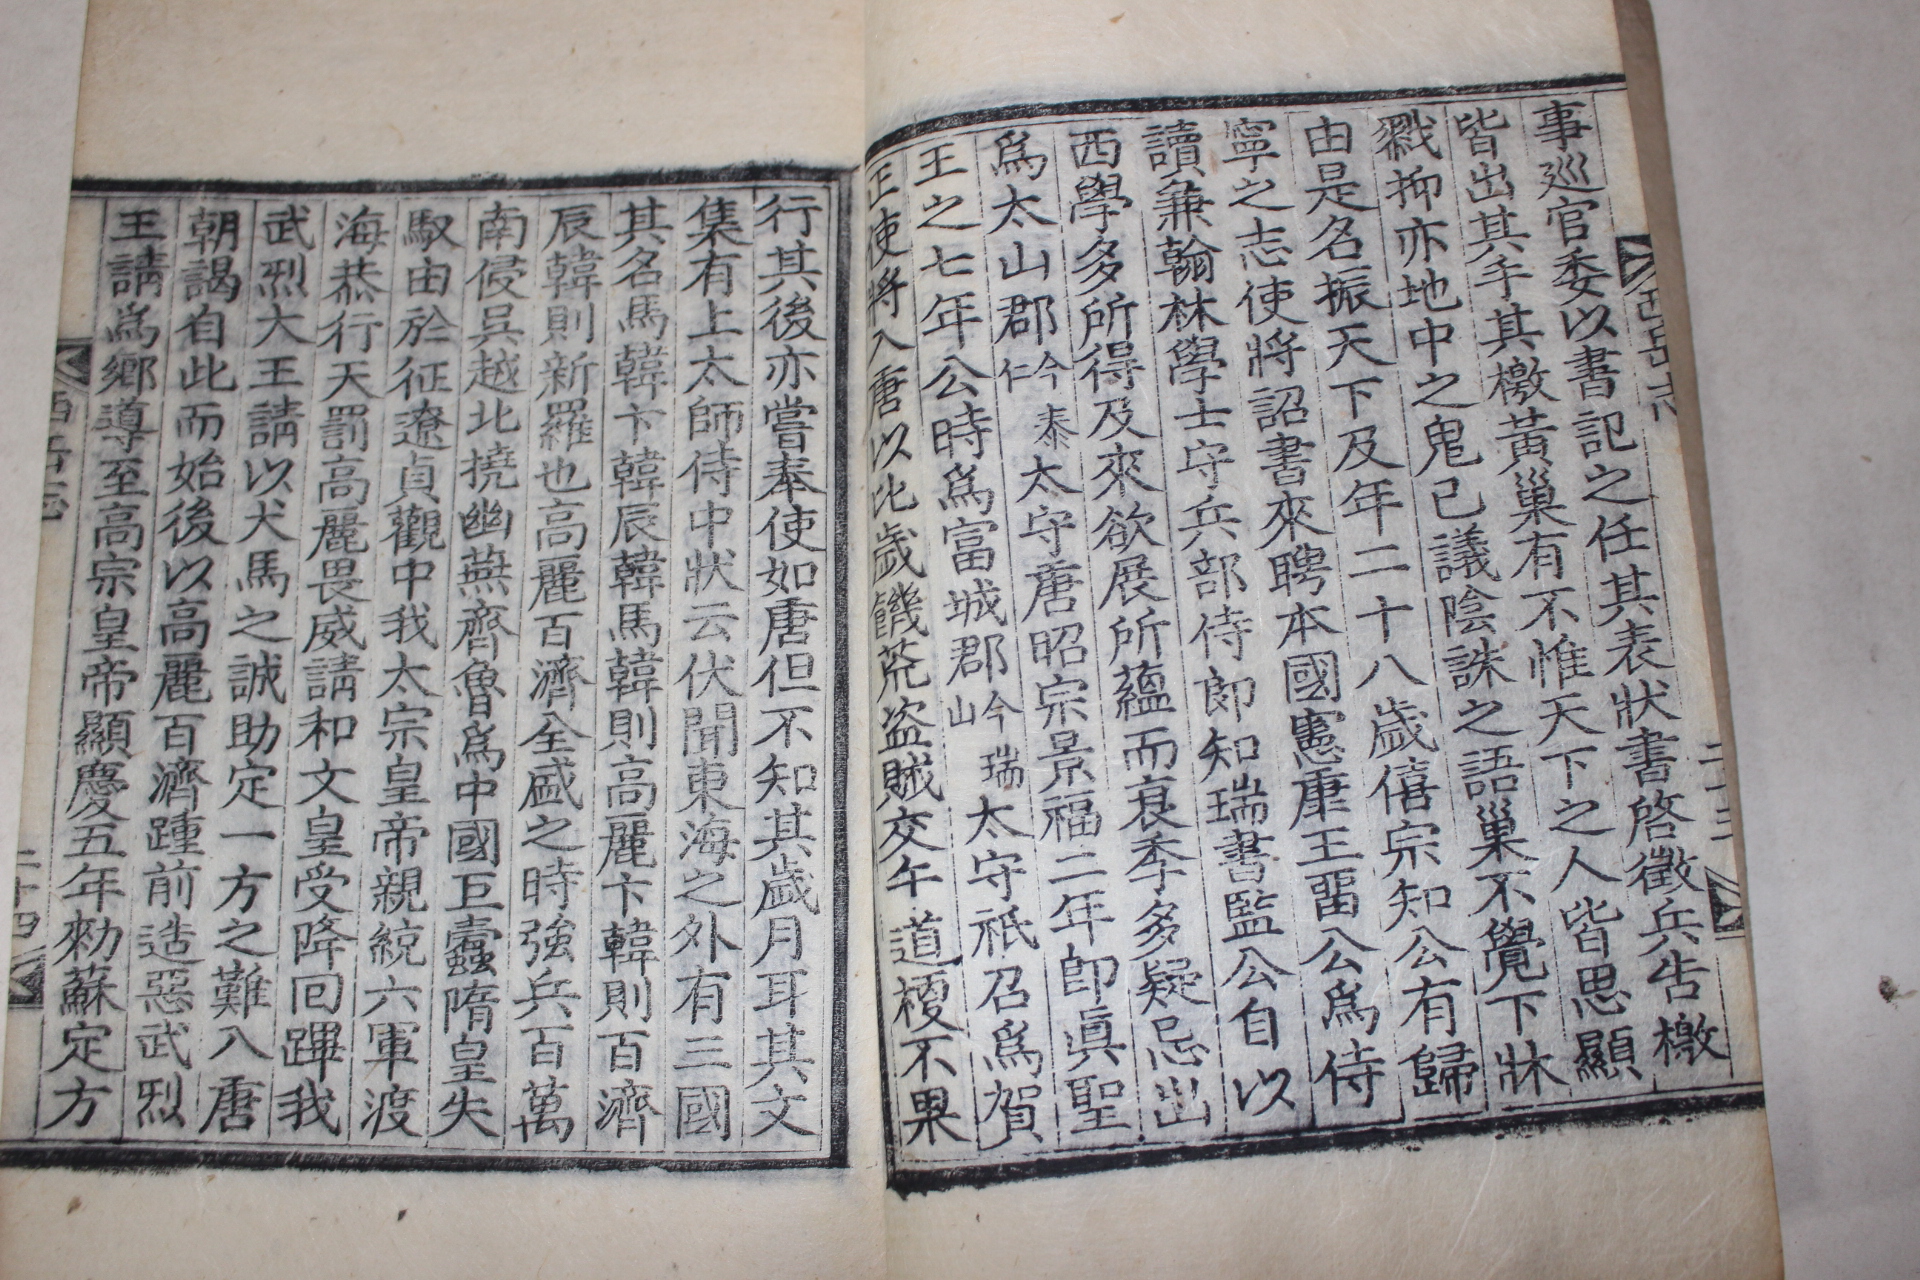 事巡官委以書記之任其表狀書啓徵兵告檄
皆出其手其檄黃巢有不惟天下之人皆思顯
戮抑亦地中之鬼已議陰誅之語巢不覺下牀
由是名振天下及年二十八歲僖宗知公有歸
寧之志使將詔書來聘本國憲康王畱公爲侍
讀兼翰林學士守兵部侍郎知瑞書監公自以
西學多所得及來欲展所蘊而衰季多疑忌出
爲太山郡今泰仁太守唐昭宗景福二年卽眞聖
王之七年公時爲富城郡今瑞山太守祇召爲賀
正使將入唐以比歲饑荒盜賊交午道梗不果
西岳志
二十三
行其後亦嘗奉使如唐但不知其歲月耳其文
集有上太師侍中狀云伏聞東海之外有三國
其名馬韓卞韓辰韓馬韓則高麗卞韓則百濟
辰韓則新羅也高麗百濟全盛之時強兵百萬
南侵吳越北撓幽燕齊魯爲中國巨蠹隋皇失
馭由於征遼貞觀中我太宗皇帝親統六軍渡
海恭行天罰高麗畏威請和文皇受降回蹕我
武烈大王請以犬馬之誠助定一方之難入唐
朝謁自此而始後以高麗百濟踵前造惡武烈
王請爲鄉導至高宗皇帝顯慶五年勑蘇定方
西岳志
二十四